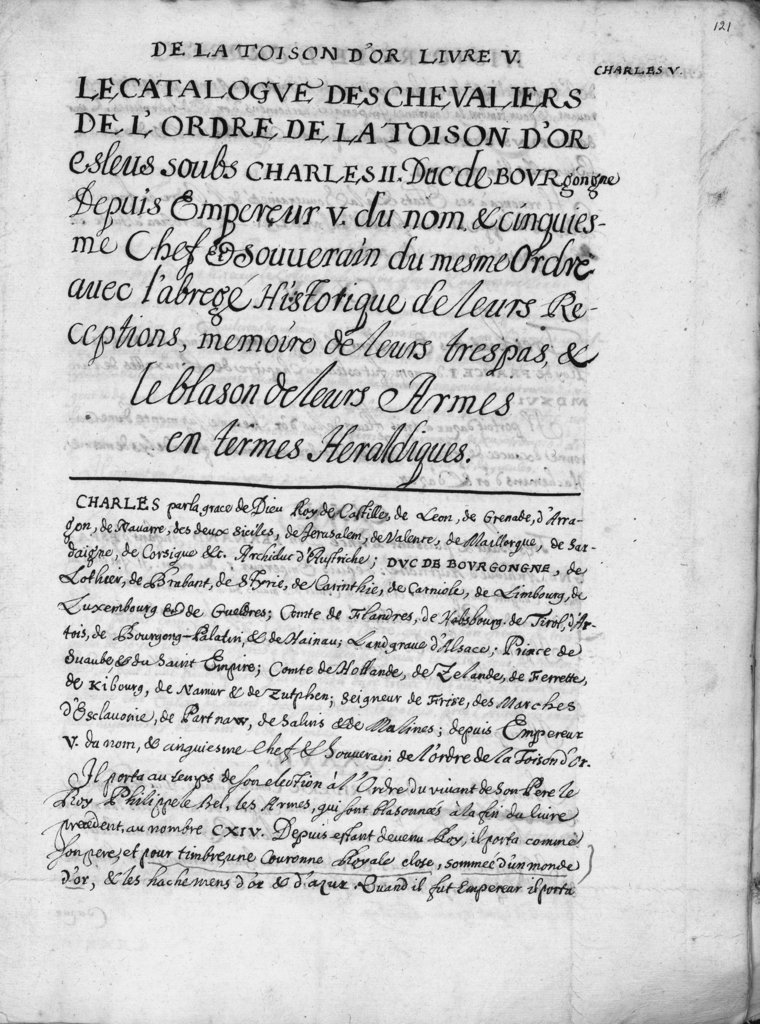 121
DE LA TOISON D'OR LIVRE V.
CHARLES V.
LE CATALOGVE DES CHEVALIERS
DE L'ORDRE DE LA TOISON D'OR
esleus soubs CHARLES II. Duc de BOVRgongne
Depuis Empereur V. du nom, & cinquies-
me Chef & Souuerain du mesme Ordre
auec l'abregé Historique de leurs Re-
ceptions, memoire de leurs trespas, &
le blason de leurs Armes
en termes Heraldiques.
CHARLES par la grace de Dieu Roy de Castille, de Leon, de Grenade, d'Arra-
gon, de Nauarre, des deux Siciles, de Jerusalem, de Valence, de Maillorque, de Sar-
daigne, de Corsique &c. Archiduc d'Austriche; DVC DE BOVRGONGNE, de
Lothier, de Brabant, de Styrie, de Carinthie, de Carniole, de Limbourg, de
Luxembourg & de Gueldres; Comte de Flandres, de Habsbourg, de Tirol, d'Ar-
tois, de Bourgong-Palatin, & de Hainau; Landgraue d'Alsace; Prince de
Suaube, & du Saint Empire; Comte de Hollande, de Zelande, de Ferrette,
de Kibourg, de Namur & de Zutphen; Seigneur de Frise, des Marches
d'Esclauonie, de Portnaw, de Salins & de Malines; depuis Empereur
V. du nom, & cinquiesme Chef & Souuerain de l'ordre de la Toison d'Or.
Il porta au temps de son election à l'Ordre du viuant de son Pere le
Roy Philippe le Bel, les Armes, qui sont blasonnées à la fin du liure
precedent, au nombre CXIV. Depuis estant deuenu Roy, il porta comme
son pere, et pour timbre, une Couronne Royale close, sommée d'un monde
d'or, & les hachemens d'or & d'azur. Quand il fut Empereur il porta